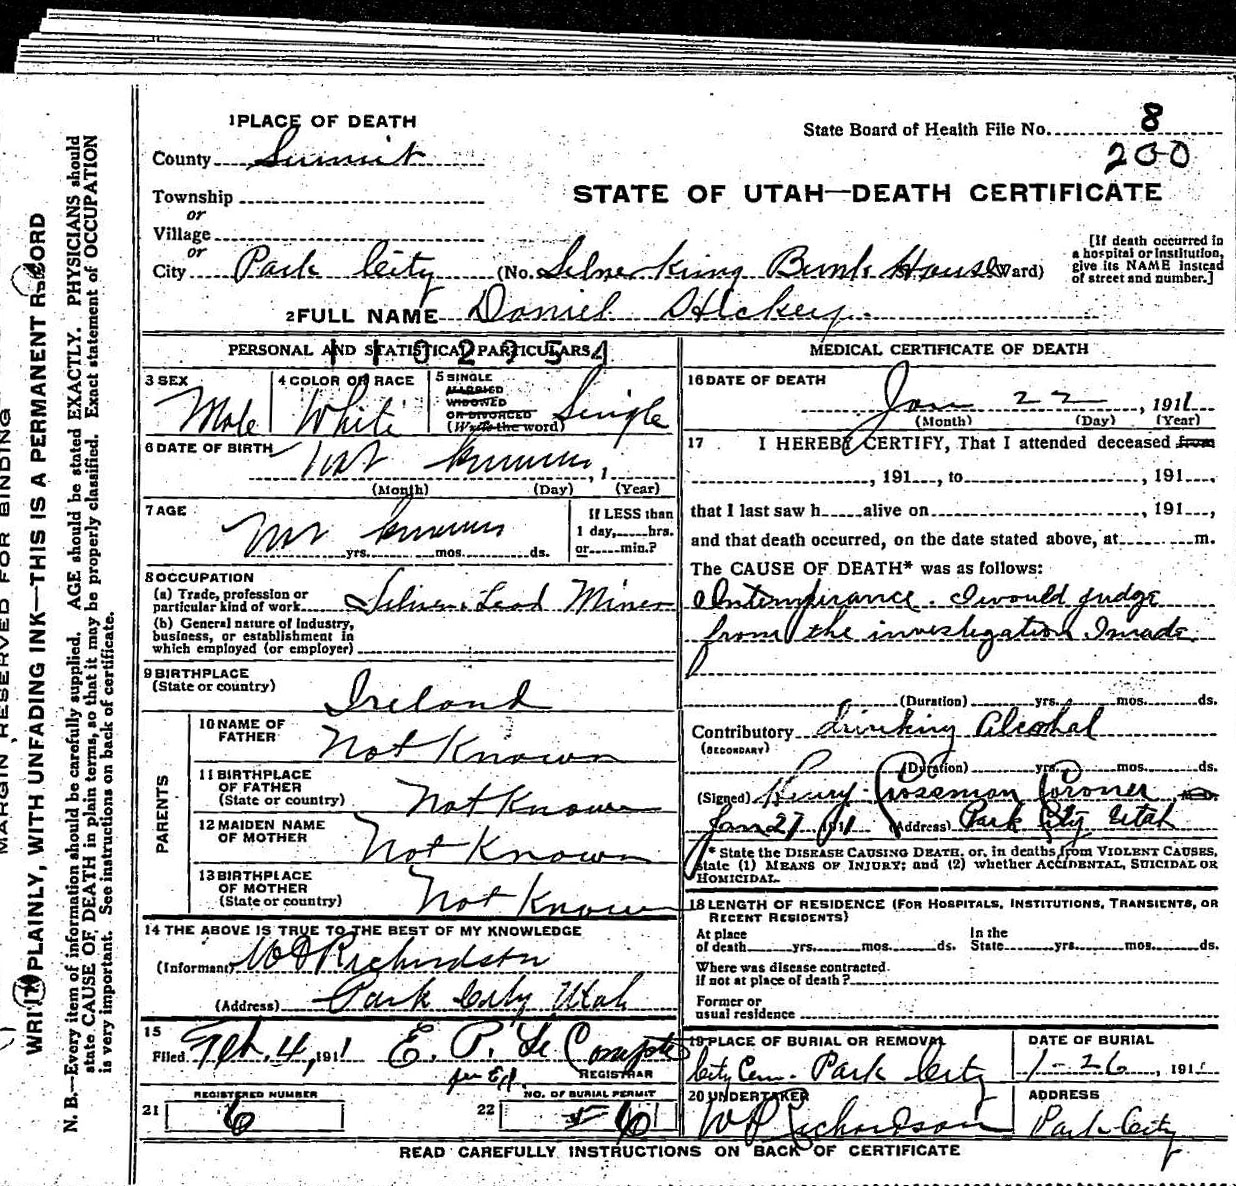 1 PLACE OF DEATH
State Board of Health File No. 8
200
County Summit
STATE OF UTAH—DEATH CERTIFICATE
Township
or
Village
or
City Park City (No. Silver King Bunk House Ward)
[If death occurred in
a hospital or institution,
give its NAME instead
of street and number.]
2 FULL NAME Daniel Hickey.
PERSONAL AND STATISTICAL PARTICULARS
1102954
3 SEX
Male
4 COLOR OR RACE
White
5 SINGLE
MARRIED
WIDOWED
OR DIVORCED
(Write the word)
Single
6 DATE OF BIRTH
Not known, 1
(Month) (Day) (Year)
7 AGE
Not known
yrs. mos. ds.
If LESS than
1 day, hrs.
or min.?
8 OCCUPATION
(a) Trade, profession or
particular kind of work Silver & Lead Miner
(b) General nature of industry,
business, or establishment in
which employed (or employer)
9 BIRTHPLACE
(State or country)
Ireland
PARENTS
10 NAME OF
FATHER
Not Known
11 BIRTHPLACE
OF FATHER
(State or country)
Not Known
12 MAIDEN NAME
OF MOTHER
Not Known
13 BIRTHPLACE
OF MOTHER
(State or country)
Not Known
14 THE ABOVE IS TRUE TO THE BEST OF MY KNOWLEDGE
(Informant) W D Richardson
(Address) Park City Utah
15
Filed Feb. 4, 1911 E. P. Le Compte
per
REGISTRAR
REGISTERED NUMBER
21 6
NO. OF BURIAL PERMIT
22 6
MEDICAL CERTIFICATE OF DEATH
16 DATE OF DEATH
Jan 22, 1911
(Month) (Day) (Year)
17 I HEREBY CERTIFY, That I attended deceased from
, 191 , to , 191 ,
that I last saw h alive on , 191 ,
and that death occurred, on the date stated above, at m.
The CAUSE OF DEATH* was as follows:
Intemperance. I would judge
from the investigation I made.
(Duration) yrs. mos. ds.
Contributory drinking Alcohal
(SECONDARY)
(Duration) yrs. mos. ds.
(Signed) Henry Crossman Coroner
Jan 27 1911 (Address) Park City Utah
* State the DISEASE CAUSING DEATH, or, in deaths from VIOLENT CAUSES,
state (1) MEANS OF INJURY; and (2) whether ACCIDENTAL, SUICIDAL OR
HOMICIDAL.
18 LENGTH OF RESIDENCE (FOR HOSPITALS, INSTITUTIONS, TRANSIENTS, OR
RECENT RESIDENTS)
At place
of death yrs. mos. ds.
In the
State yrs. mos. ds.
Where was disease contracted
if not at place of death?
Former or
usual residence
19 PLACE OF BURIAL OR REMOVAL
City Cem. Park City
DATE OF BURIAL
1-26, 191
20 UNDERTAKER
W D Richardson
ADDRESS
Park City
READ CAREFULLY INSTRUCTIONS ON BACK OF CERTIFICATE
MARGIN RESERVED FOR BINDING
WRITE PLAINLY, WITH UNFADING INK—THIS IS A PERMANENT RECORD
N. B.—Every item of information should be carefully supplied. AGE should be stated EXACTLY. PHYSICIANS should
state CAUSE OF DEATH in plain terms, so that it may be properly classified. Exact statement of OCCUPATION
is very important. See instructions on back of certificate.